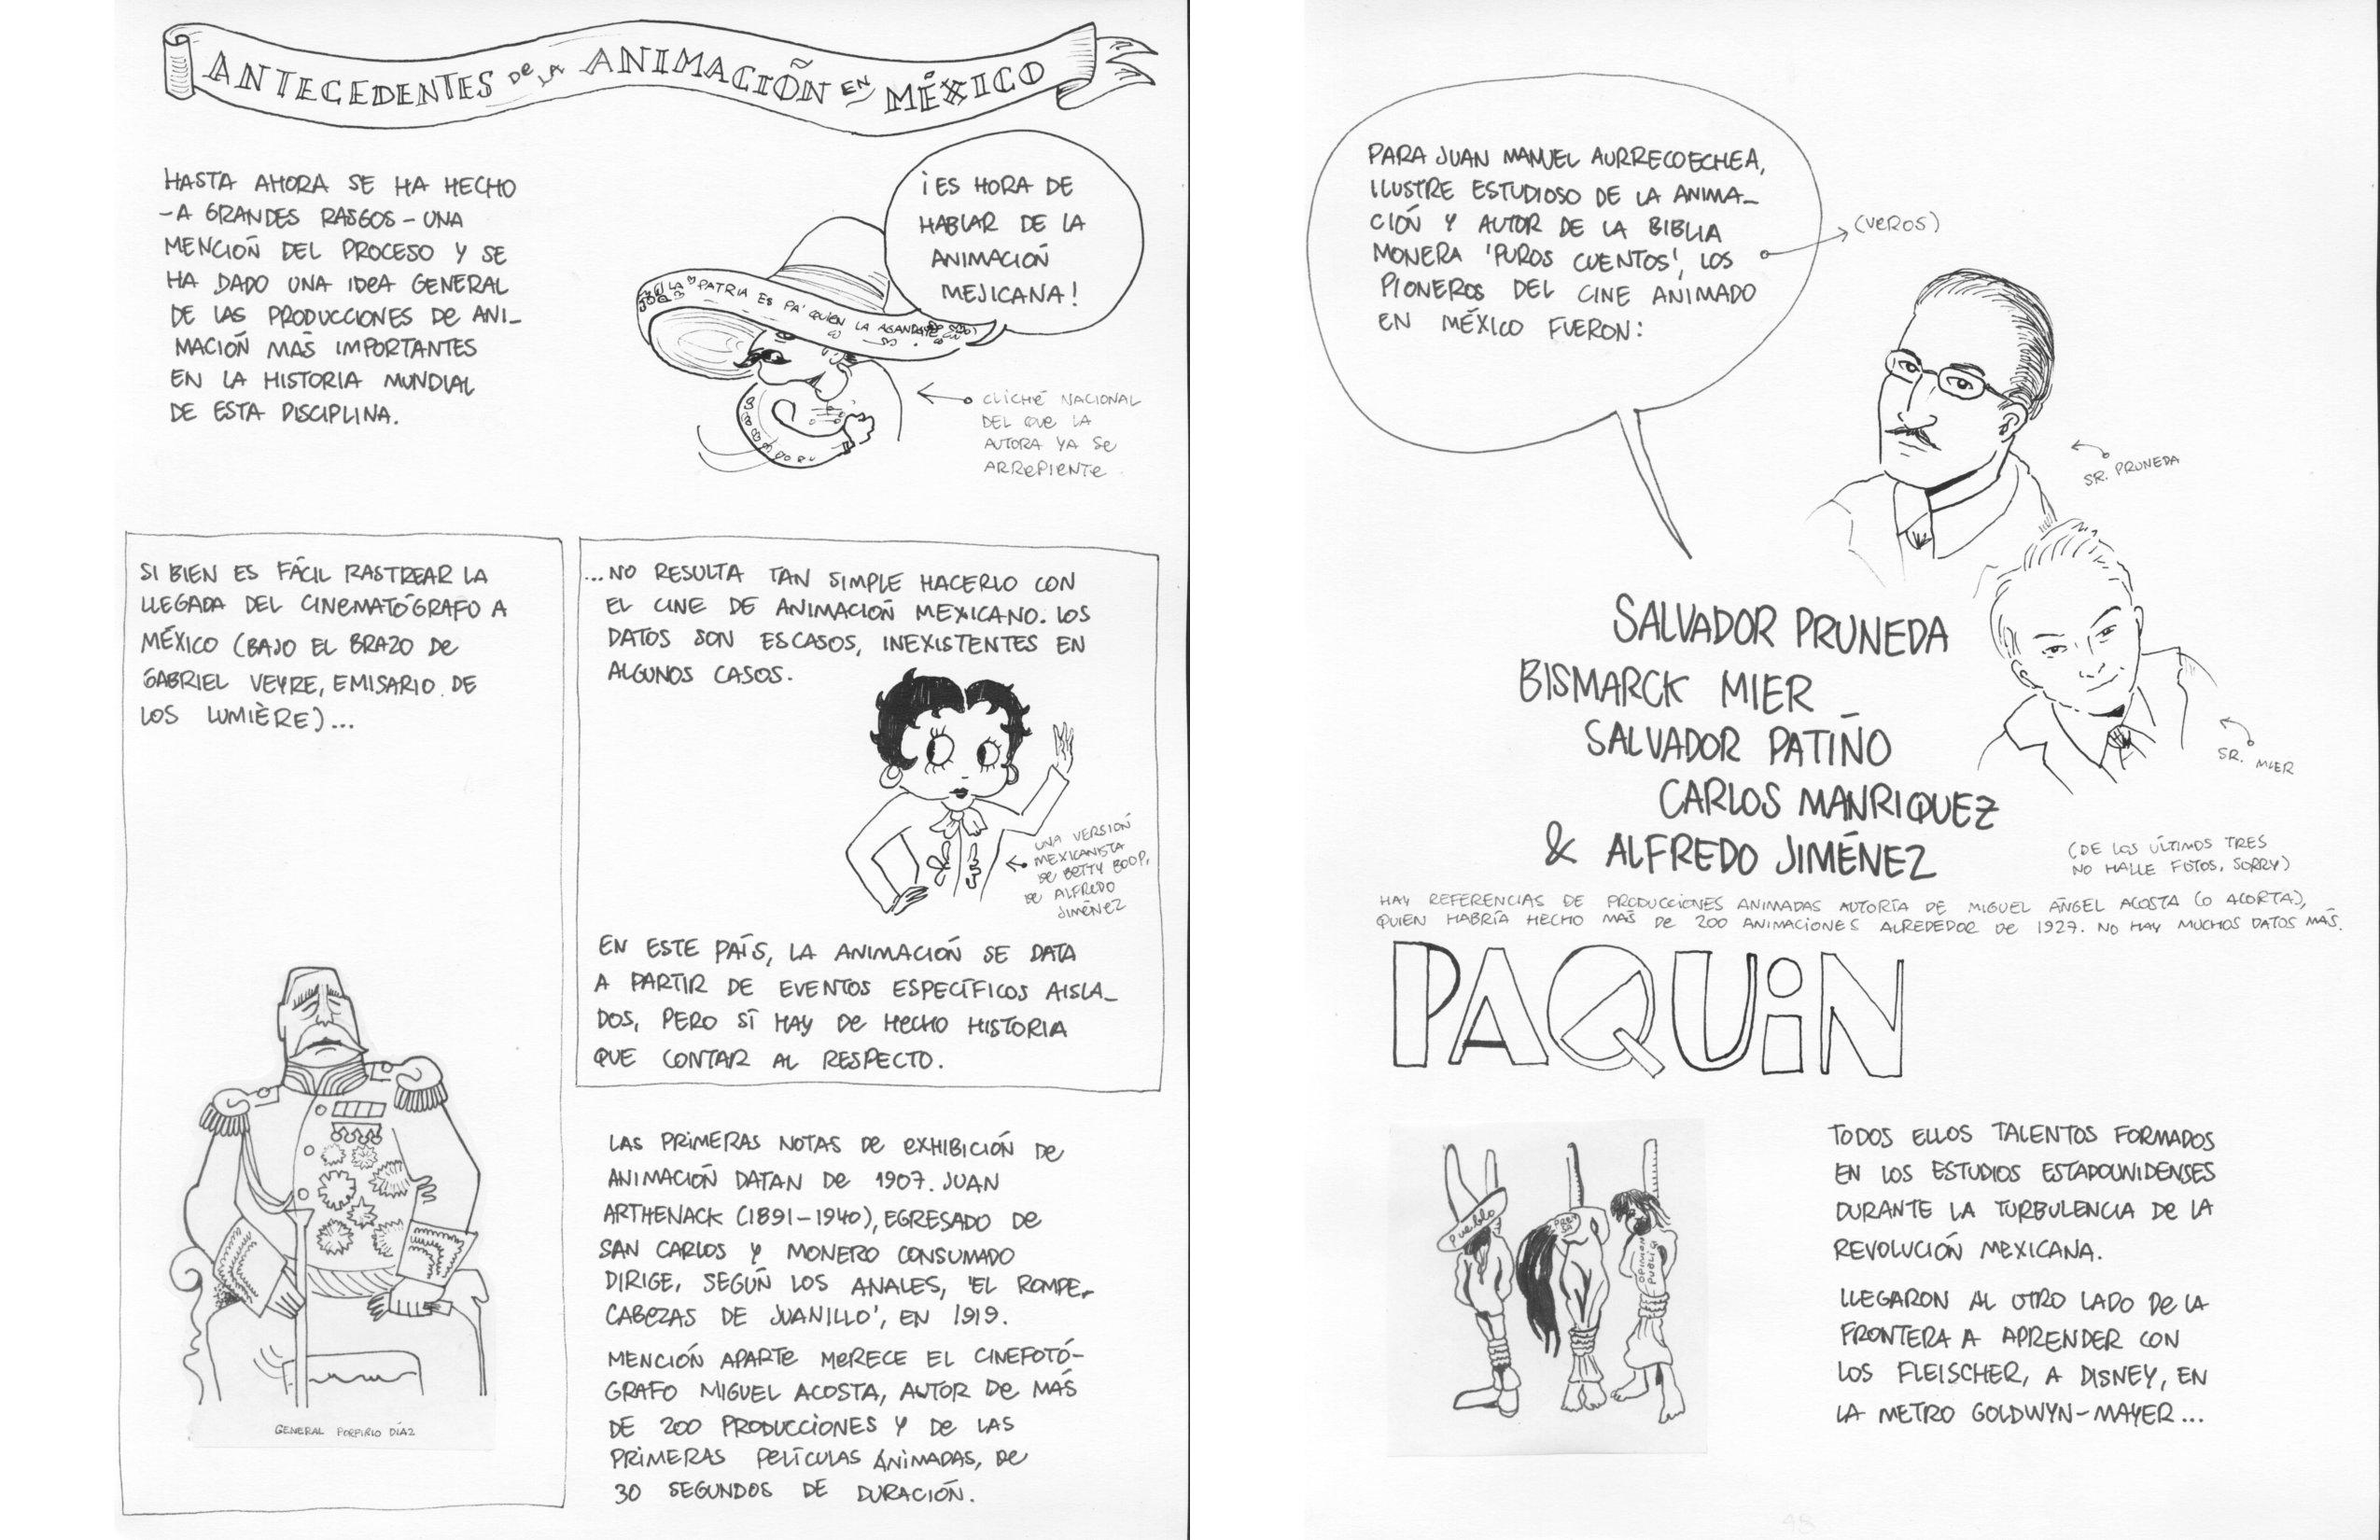 ANTECEDENTES DE LA ANIMACIÓN EN MÉXICO
HASTA AHORA SE HA HECHO
-A GRANDES RASGOS- UNA
MENCIÓN DEL PROCESO Y SE
HA DADO UNA IDEA GENERAL
DE LAS PRODUCCIONES DE ANI-
MACIÓN MÁS IMPORTANTES
EN LA HISTORIA MUNDIAL
DE ESTA DISCIPLINA.
¡ES HORA DE
HABLAR DE LA
ANIMACIÓN
MEJICANA!
LA PATRIA ES PA' QUIEN LA AGANDAYE
CLICHÉ NACIONAL
DEL QUE LA
AUTORA YA SE
ARREPIENTE
SI BIEN ES FÁCIL RASTREAR LA
LLEGADA DEL CINEMATÓGRAFO A
MÉXICO (BAJO EL BRAZO DE
GABRIEL VEYRE, EMISARIO DE
LOS LUMIÈRE)...
GENERAL PORFIRIO DÍAZ
...NO RESULTA TAN SIMPLE HACERLO CON
EL CINE DE ANIMACIÓN MEXICANO. LOS
DATOS SON ESCASOS, INEXISTENTES EN
ALGUNOS CASOS.
UNA VERSIÓN
MEXICANISTA
DE BETTY BOOP,
DE ALFREDO
JIMÉNEZ
EN ESTE PAÍS, LA ANIMACIÓN SE DATA
A PARTIR DE EVENTOS ESPECÍFICOS AISLA-
DOS, PERO SÍ HAY DE HECHO HISTORIA
QUE CONTAR AL RESPECTO.
LAS PRIMERAS NOTAS DE EXHIBICIÓN DE
ANIMACIÓN DATAN DE 1907. JUAN
ARTHENACK (1891-1940), EGRESADO DE
SAN CARLOS Y MONERO CONSUMADO
DIRIGE, SEGÚN LOS ANALES, 'EL ROMPE-
CABEZAS DE JUANILLO', EN 1919.
MENCIÓN APARTE MERECE EL CINEFOTÓ-
GRAFO MIGUEL ACOSTA, AUTOR DE MÁS
DE 200 PRODUCCIONES Y DE LAS
PRIMERAS PELÍCULAS ANIMADAS, DE
30 SEGUNDOS DE DURACIÓN.
PARA JUAN MANUEL AURRECOECHEA,
ILUSTRE ESTUDIOSO DE LA ANIMA-
CIÓN Y AUTOR DE LA BIBLIA
MONERA 'PUROS CUENTOS', LOS
PIONEROS DEL CINE ANIMADO
EN MÉXICO FUERON:
(VEROS)
SR. PRUNEDA
SALVADOR PRUNEDA
BISMARCK MIER
SALVADOR PATIÑO
CARLOS MANRIQUEZ
& ALFREDO JIMÉNEZ
SR. MIER
(DE LOS ÚLTIMOS TRES
NO HALLE FOTOS, SORRY)
HAY REFERENCIAS DE PRODUCCIONES ANIMADAS AUTORÍA DE MIGUEL ÁNGEL ACOSTA (O ACORTA),
QUIEN HABRÍA HECHO MÁS DE 200 ANIMACIONES ALREDEDOR DE 1927. NO HAY MUCHOS DATOS MÁS.
PAQUiN
Pueblo
OPINION
PUBLICA
TODOS ELLOS TALENTOS FORMADOS
EN LOS ESTUDIOS ESTADOUNIDENSES
DURANTE LA TURBULENCIA DE LA
REVOLUCIÓN MEXICANA.
LLEGARON AL OTRO LADO DE LA
FRONTERA A APRENDER CON
LOS FLEISCHER, A DISNEY, EN
LA METRO GOLDWYN-MAYER...
48